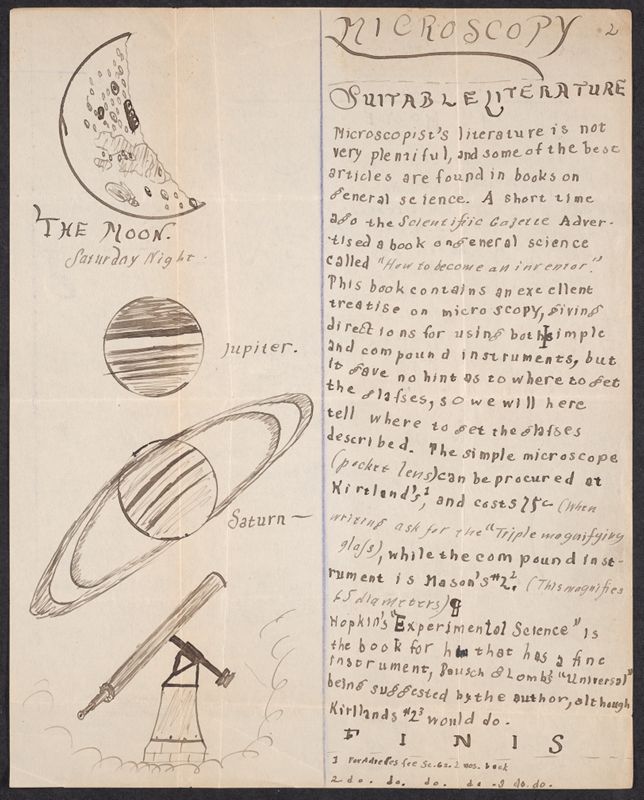 THE MOON.
Saturday Night.
Jupiter.
Saturn—
MICROSCOPY 2
SUITABLE LITERATURE
Microscopist's literature is not
very plentiful, and some of the best
articles are found in books on
general science. A short time
ago the Scientific Gazette Adver-
tised a book on general science
called "How to become an inventor."
This book contains an excellent
treatise on microscopy, giving
directions for using both simple
and compound instruments, but
it gave no hint as to where to get
the glaſses, so we will here
tell where to get the glaſses
described. The simple microscope
(pocket lens) can be procured at
Kirtland's,¹ and costs 75c (When
writing ask for the "Triple magnifying
glaſs), while the compound inst-
rument is Mason's #2². (This magnifies
65 diameters) ¶
Hopkin's "Experimental Science" is
the book for him that has a fine
instrument, Bausch & Lombs' "Universal"
being suggested by the author, although
Kirtlands #2³ would do.
FINIS
1 For Adreſſes ſee Sc. Gz. 2 nos. back
2 do. do. do. do - 3 do. do.